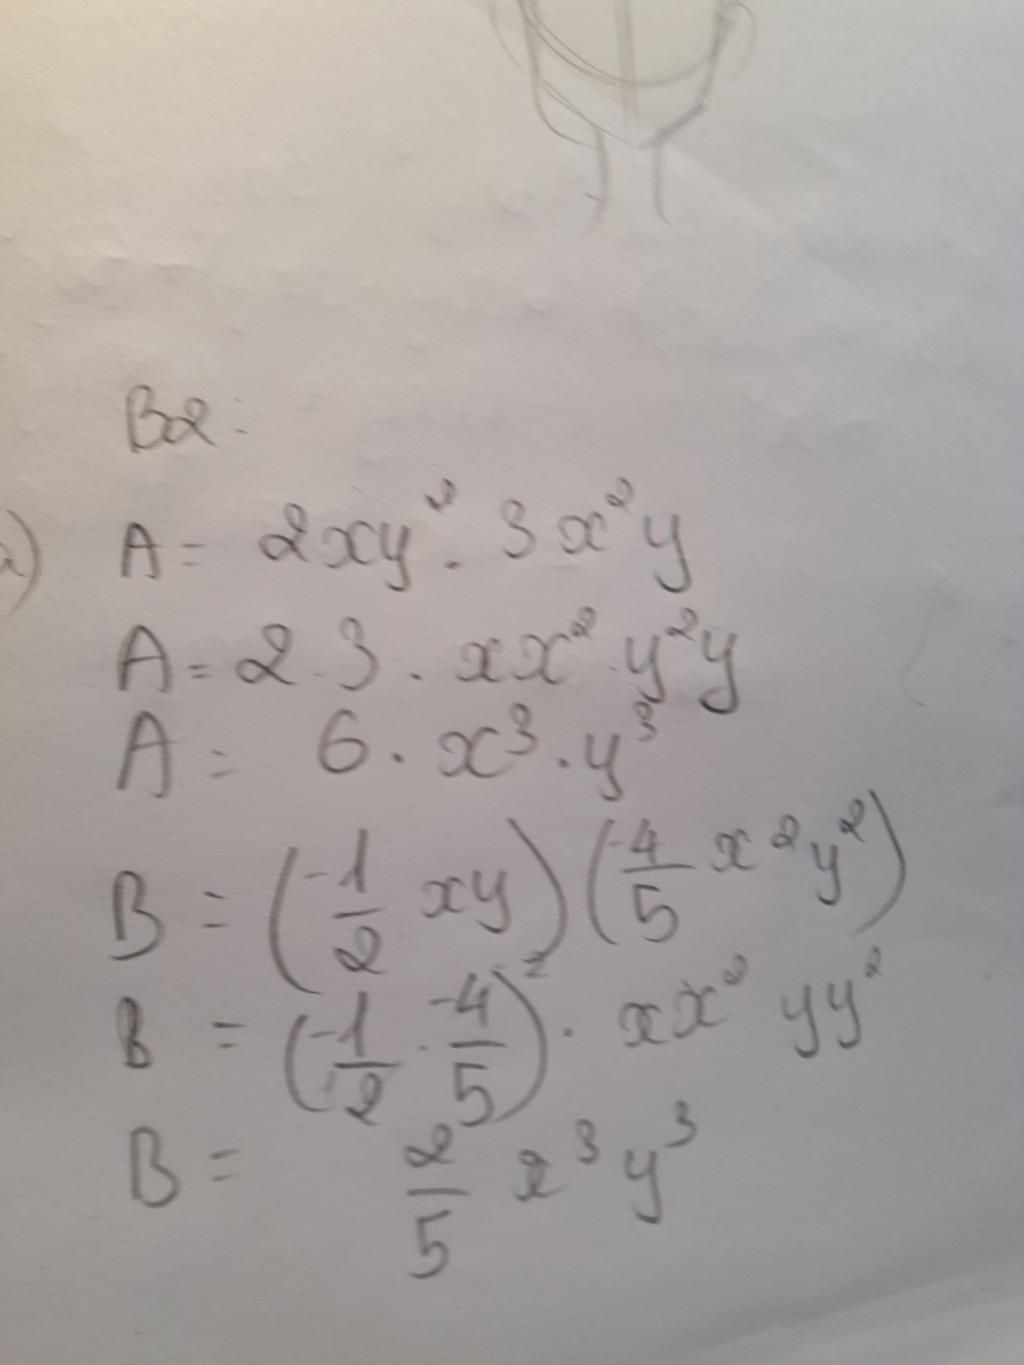 B2:
a) A = 2xy². 3x²y
A = 2.3. xx².y²y
A = 6. x³.y³
B = (-1/2 xy) (-4/5 x²y²)
B = (-1/2 . -4/5). xx² yy²
B = 2/5 x³y³